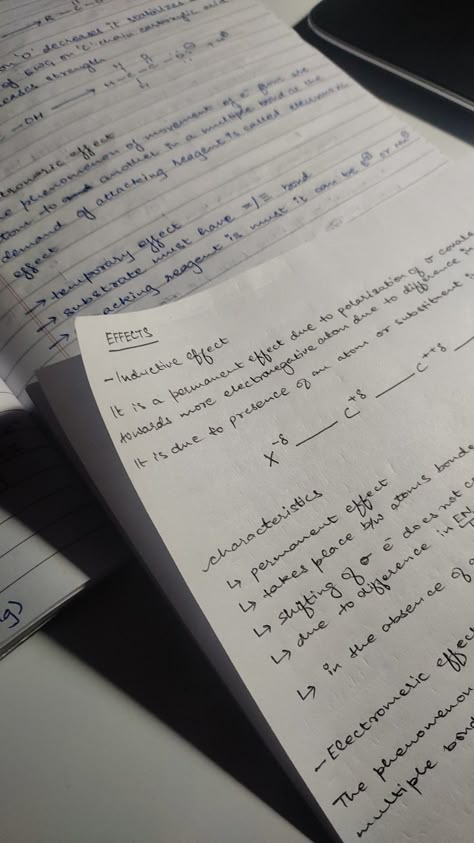 'O' decrease it stabilizes
of EWG on 'C' chain carboxylic acid
strength
OH
effect
phenomenon of movement of e⁻ from one
atom to another in a multiple bond at the
demand of attacking reagent is called electromeric
effect
→ temporary effect
→ substrate must have =/≡ bond
→ attacking reagent is must it can be
EFFECTS
- Inductive effect
It is a permanent effect due to polarization of σ
towards more electronegative atom due to difference in
It is due to presence of an atom or substituent
X⁻ᵟ — C⁺ᵟ — C⁺⁺ᵟ —
characteristics
↳ permanent effect
↳ takes place b/w atoms
↳ shifting of σ e⁻ does not
↳ due to difference in EN
↳ in the absence of
- Electromeric effect
The phenomenon
multiple